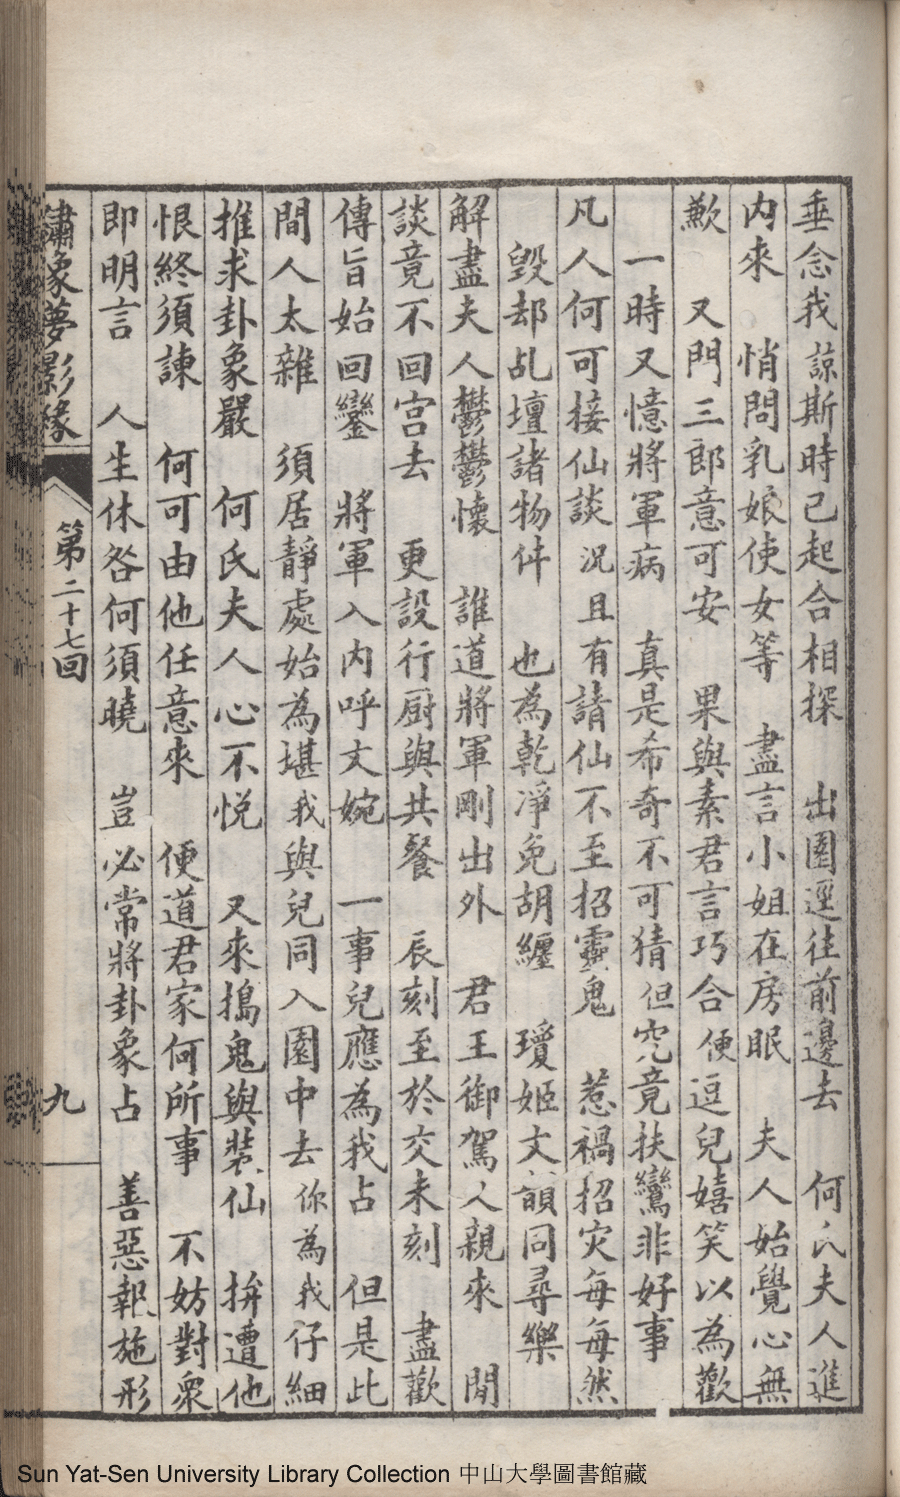 垂念我 諒斯時已起合相探 出園逕往前邊去 何氏夫人進
内來 悄問乳娘使女等 盡言小姐在房眠 夫人始覺心無
歉 又門三郎意可安 果與素君言巧合 便逗兒嬉笑以為歡
一時又憶將軍病 真是希奇不可猜 但究竟扶鸞非好事
凡人何可接仙談 况且有請仙不至招靈鬼 惹禍招灾每每然
毀却乩壇諸物件 也為乾凈免胡纏 瓊姬文韻同尋樂
解盡夫人鬱鬱懷 誰道將軍剛出外 君王御駕人親來 閒
談竟不回宫去 更設行厨與共餐 辰刻至於交未刻 盡歡
傳旨始回鑾 將軍入内呼文婉 一事兒應為我占 但是此
間人太雜 須居靜處始為堪 我與兒同入園中去 你為我仔細
推求卦象嚴 何氏夫人心不悦 又來搗鬼與裝仙 拚遭他
恨終須諫 何可由他任意來 便道君家何所事 不妨對衆
即明言 人生休咎何須曉 豈必常將卦象占 善惡報施形
繡象夢影緣
第二十七回
九
Sun Yat-Sen University Library Collection 中山大學圖書館藏